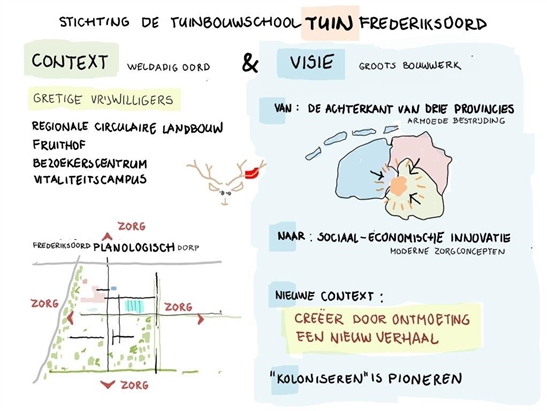 STICHTING DE TUINBOUWSCHOOL TUIN FREDERIKSOORD
CONTEXT WELDADIG OORD
& VISIE GROOTS BOUWWERK
GRETIGE VRIJWILLIGERS
REGIONALE CIRCULAIRE LANDBOUW
FRUITHOF
BEZOEKERSCENTRUM
VITALITEITSCAMPUS
ZORG
FREDERIKSOORD PLANOLOGISCH DORP
ZORG
ZORG
ZORG
VAN: DE ACHTERKANT VAN DRIE PROVINCIES
ARMOEDE BESTRIJDING
NAAR: SOCIAAL-ECONOMISCHE INNOVATIE
MODERNE ZORGCONCEPTEN
NIEUWE CONTEXT:
CREËER DOOR ONTMOETING
EEN NIEUW VERHAAL
"KOLONISEREN" IS PIONEREN